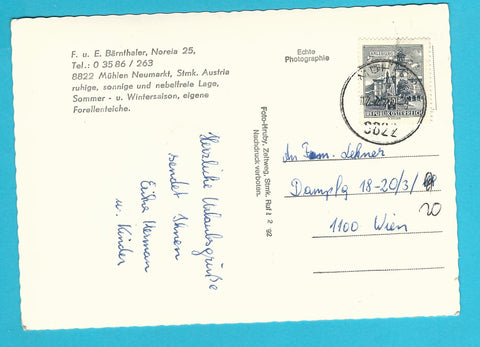 F. u. E. Bärnthaler, Noreia 25,
Tel.: 0 35 86 / 263
8822 Mühlen Neumarkt, Stmk. Austria
ruhige, sonnige und nebelfreie Lage,
Sommer - u. Wintersaison, eigene
Forellenteiche.
Echte
Photographie
REPUBLIK ÖSTERREICH
8822
Foto-Hruby, Zeltweg, Stmk. Ruf 2 2 92
Nachdruck verboten.
Herzliche Urlaubsgrüße
sendet Ihnen
Erika Herman
u. Kinder
An Fam. Lehner
Dampfg 18-20/3/
20
1100 Wien